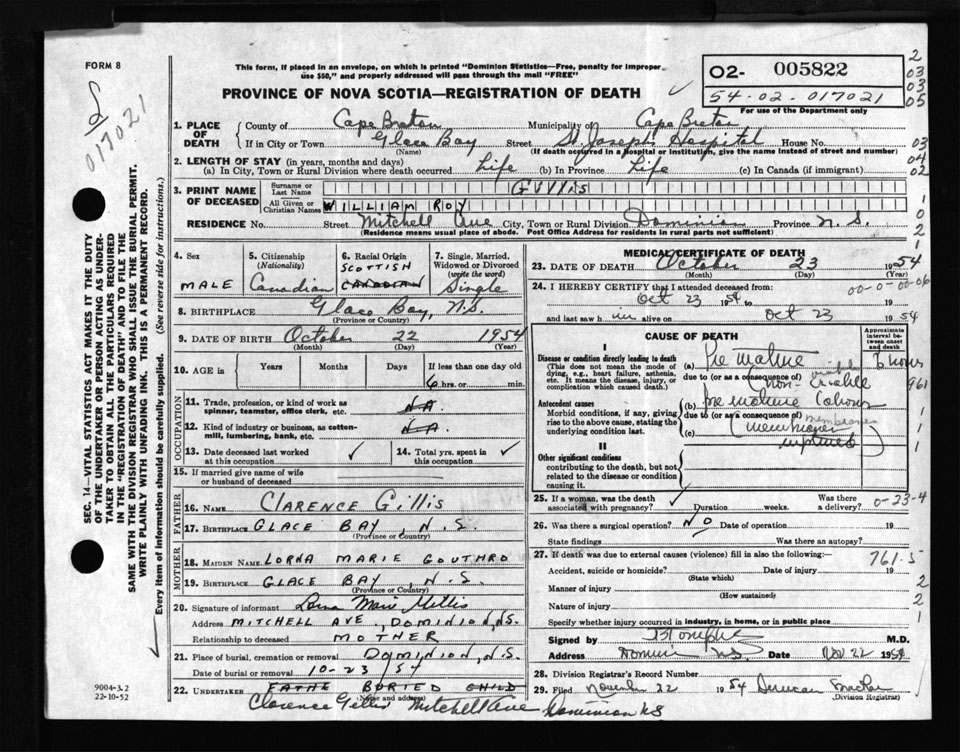 FORM 8
This form, if placed in an envelope, on which is printed "Dominion Statistics—Free, penalty for improper
use $50," and properly addressed will pass through the mail "FREE"
PROVINCE OF NOVA SCOTIA—REGISTRATION OF DEATH
O2- 005822
54-02-017021
For use of the Department only
2
03
03
05
01702 1
SEC. 14—VITAL STATISTICS ACT MAKES IT THE DUTY
OF THE UNDERTAKER OR PERSON ACTING AS UNDER-
TAKER TO OBTAIN ALL THE PARTICULARS REQUIRED
IN THE "REGISTRATION OF DEATH" AND TO FILE THE
SAME WITH THE DIVISION REGISTRAR WHO SHALL ISSUE THE BURIAL PERMIT.
WRITE PLAINLY WITH UNFADING INK. THIS IS A PERMANENT RECORD.
Every item of information should be carefully supplied. (See reverse side for instructions.)
1. PLACE OF DEATH
County of Cape Breton Municipality of Cape Breton
If in City or Town Glace Bay Street St. Joseph Hospital House No. 03
(Name) (If death occurred in a hospital or institution, give the name instead of street and number)
04
2. LENGTH OF STAY (in years, months and days)
(a) In City, Town or Rural Division where death occurred Life (b) In Province Life (c) In Canada (if immigrant) 02
3. PRINT NAME OF DECEASED
Surname or Last Name GILLIS
All Given or Christian Names WILLIAM ROY
RESIDENCE No. Street Mitchell Ave City, Town or Rural Division Dominion Province N. S.
(Residence means usual place of abode. Post Office Address for residents in rural parts not sufficient)
1
0
2
1
4. Sex
MALE
5. Citizenship
(Nationality)
Canadian
6. Racial Origin
SCOTTISH
CANADIAN
7. Single, Married,
Widowed or Divorced
(write the word)
Single
8. BIRTHPLACE Glace Bay, N.S.
(Province or Country)
9. DATE OF BIRTH October 22 1954
(Month) (Day) (Year)
10. AGE in Years Months Days If less than one day
6 hrs. or min.
OCCUPATION
11. Trade, profession, or kind of work as
spinner, teamster, office clerk, etc. N.A.
12. Kind of industry or business, as cotton-
mill, lumbering, bank, etc. N.A.
13. Date deceased last worked
at this occupation
14. Total yrs. spent in
this occupation
15. If married give name of wife
or husband of deceased
FATHER
16. NAME CLARENCE GILLIS
17. BIRTHPLACE GLACE BAY, N.S.
(Province or Country)
MOTHER
18. MAIDEN NAME LORNA MARIE GOUTHRO
19. BIRTHPLACE GLACE BAY, N.S.
(Province or Country)
20. Signature of informant Lorna Marie Gillis
Address MITCHELL AVE, DOMINION, N.S.
Relationship to deceased MOTHER
21. Place of burial, cremation or removal DOMINION, N.S.
Date of burial or removal 10-23 1954
22. UNDERTAKER BURIED CHILD
(Name and address)
Clarence Gillis Mitchell Ave Dominion NS
9004-3.2
22-10-52
MEDICAL CERTIFICATE OF DEATH
23. DATE OF DEATH October 23 1954
(Month) (Day) (Year)
24. I HEREBY CERTIFY that I attended deceased from: 00-0-00-06
Oct 23 1954 to 19
and last saw h im alive on Oct 23 1954
CAUSE OF DEATH
Approximate
interval be-
tween onset
and death
I
Disease or condition directly leading to death
(This does not mean the mode of
dying, e.g., heart failure, asthenia,
etc. It means the disease, injury, or
complication which caused death.)
(a) Premature 6 hours
due to (or as a consequence of) non-viable 961
Antecedent causes
Morbid conditions, if any, giving
rise to the above cause, stating the
underlying condition last.
(b) premature labour 1
due to (or as a consequence of) membranes 1
(c) ruptured 1
II
Other significant conditions
contributing to the death, but not
related to the disease or condition
causing it.
25. If a woman, was the death
associated with pregnancy? Duration weeks. Was there
a delivery? 0-23-4
26. Was there a surgical operation? NO Date of operation 19
State findings Was there an autopsy?
27. If death was due to external causes (violence) fill in also the following:— 761-5
Accident, suicide or homicide? Date of injury 19
(State which)
Manner of injury 2
(How sustained)
Nature of injury 2
Specify whether injury occurred in industry, in home, or in public place 1
Signed by M.D.
Address Dominion N.S. Date Nov 22 1954
28. Division Registrar's Record Number
29. Filed November 22 1954 Duncan
(Division Registrar)